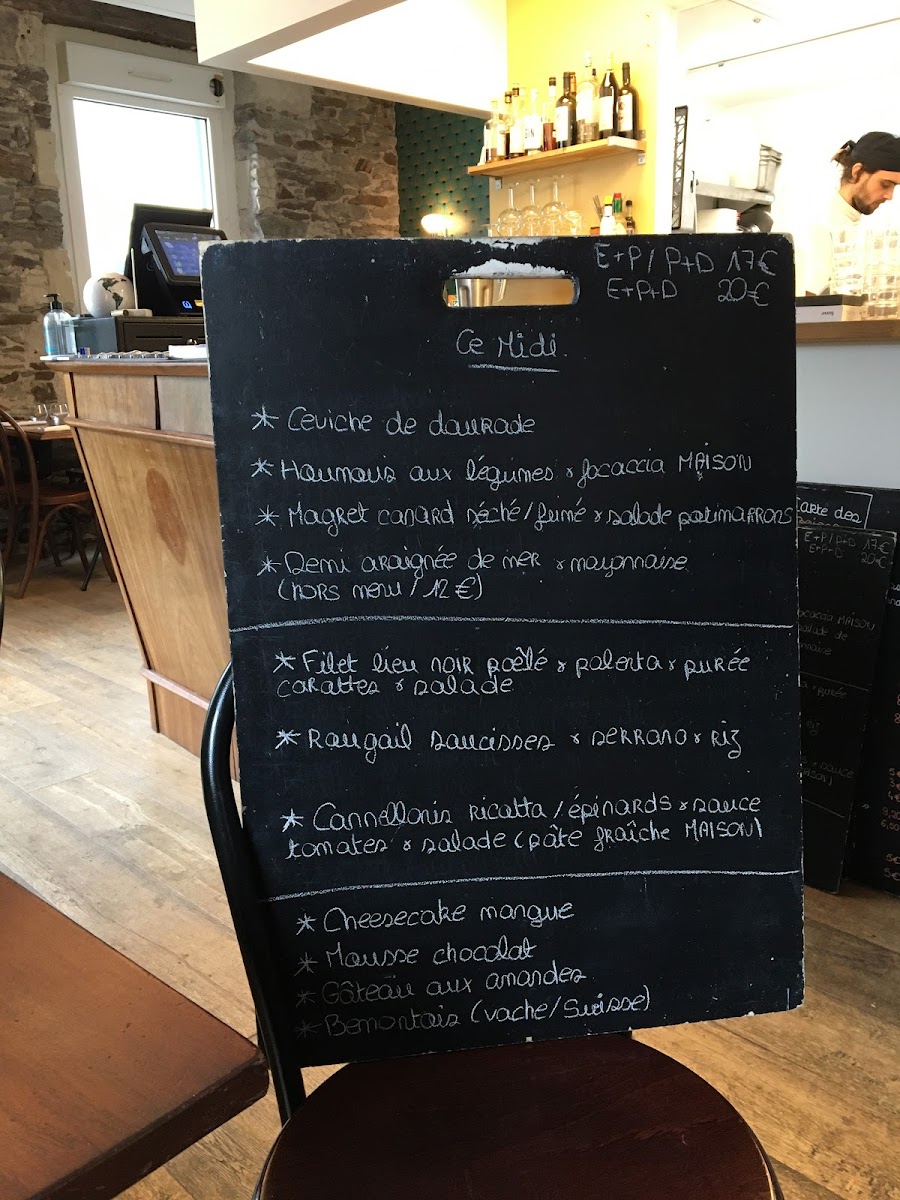 E+P / P+D 17€
E+P+D 20€
Ce Midi
* Ceviche de daurade
* Houmous aux légumes & focaccia MAISON
* Magret canard séché/fumé & salade potimarrons
* Demi araignée de mer & mayonnaise
(hors menu / 12 €)
* Filet lieu noir poêlé & polenta & purée
carottes & salade
* Rougail saucisses & serrano & riz
* Cannellonis ricotta / épinards & sauce
tomates & salade (pâte fraîche MAISON)
* Cheesecake mangue
* Mousse chocolat
* Gâteau aux amandes
* Bemontois (vache/Suisse)
CARTE des
E+P / P+D 17€
E+P+D 20€
focaccia MAISON
salade de
& purée
riz
& sauce
MAISON